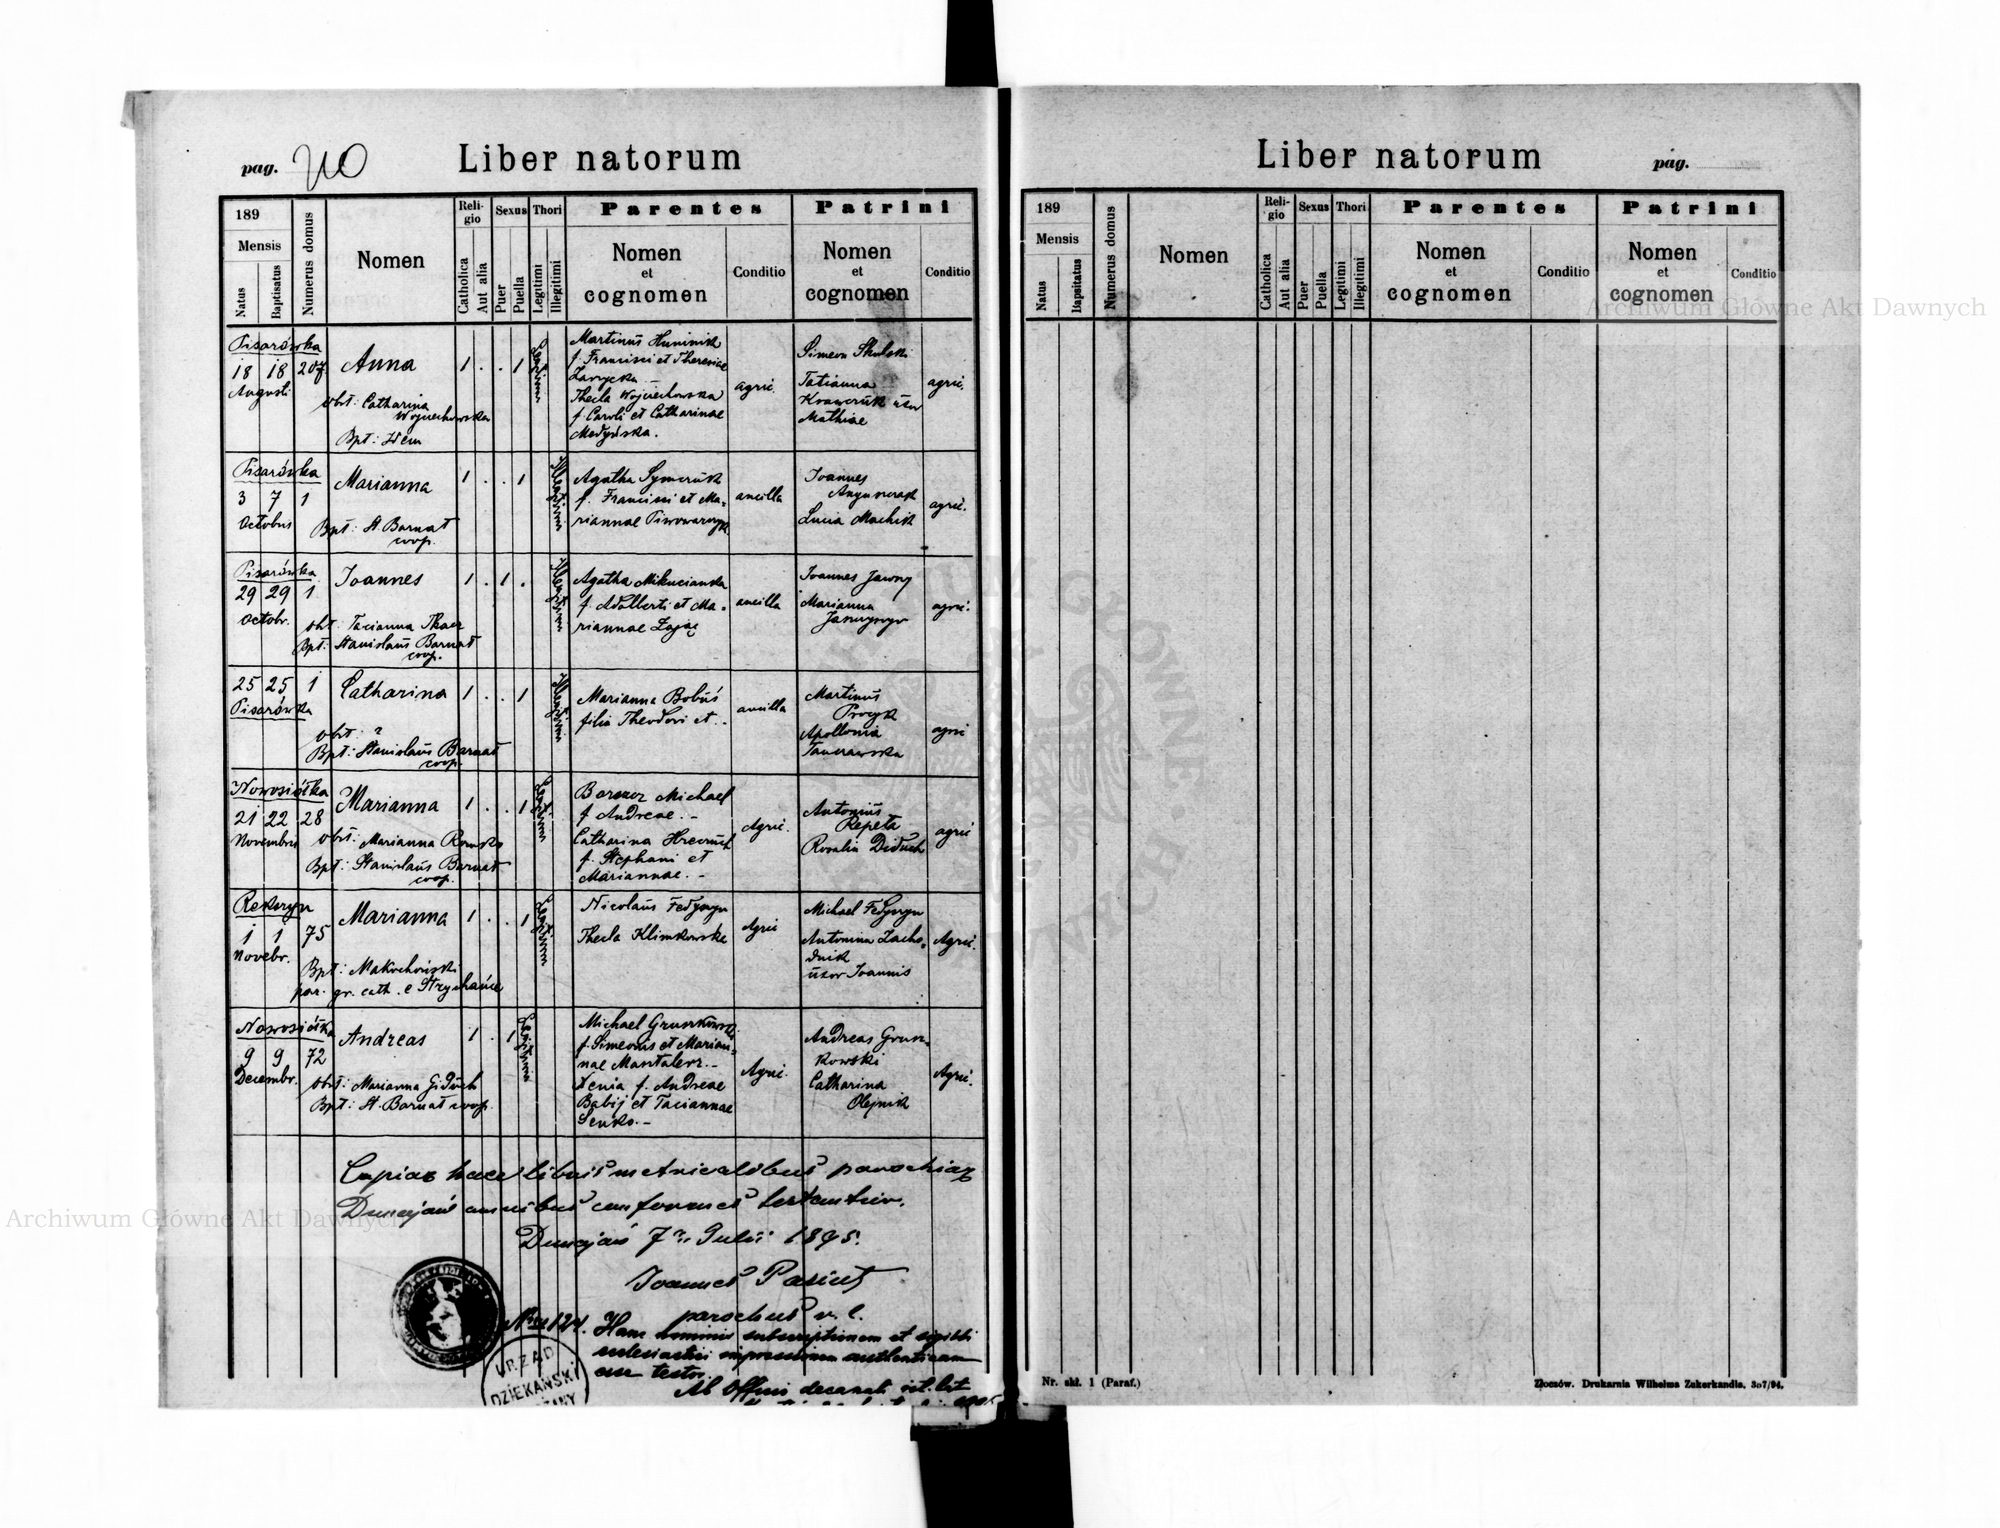 pag. Liber natorum
189
Mensis
Natus
Baptisatus
Numerus domus
Nomen
Religio
Catholica
Aut alia
Sexus
Puer
Puella
Thori
Legitimi
Illegitimi
Parentes
Nomen
et
cognomen
Conditio
Patrini
Nomen
et
cognomen
Conditio
Pisarówka
18 18 207
Augusti
Anna
obst: Catharina
Wojciechowska
Bpt: Idem
1 . . 1
Martinus Huminik
f. Francisci et Theresiae
Zarycka
Thecla Wojciechowska
f. Caroli et Catharinae
Medyńska.
agric.
Simeon Skulski
Tatianna
Krawczuk uxor
Mathiae
agric.
Pisarówka
3 7 1
Octobris
Marianna
Bpt: St Barnat
coop.
1 . . 1
Agatha Symczuk
f. Francisci et Ma-
riannae Piwowarczyk
ancilla
Joannes
Lucia Machik
agric.
Pisarówka
29 29 1
Octobr.
Joannes
obt: Tacianna Tkacz
Bpt: Stanislaus Barnat
coop.
1 . 1 .
Agatha Mikucianska
f. Adalberti et Ma-
riannae Zając
ancilla
Joannes Jawny
Marianna
agric.
25 25 1
Pisarówka
Catharina
obst: ?
Bpt: Stanislaus Barnat
coop.
1 . . 1
Marianna Bobus
filia Theodori et . .
ancilla
Martinus
Procyk
Apollonia
agric
Nowosiółka
21 22 28
Novembris
Marianna
obst: Marianna
Bpt: Stanislaus Barnat
coop.
1 . . 1
Michael
f Andreae. -
Catharina Hrecuch
f. Stephani et
Mariannae. -
Agric.
Antonius
Repeta
Rosalia Diduch
agric
Rekszyn
1 1 75
Novebr.
Marianna
Bpt: Makochoński
par. gr. cath. e Strychańce
1 . . 1
Nicolaus Fedyszyn
Thecla Klimkowska
Agric
Michael Fedyszyn
Antonina Zacho-
dnik
uxor Joannis
Agric.
Nowosiółka
9 9 72
Decembr.
Andreas
obst: Marianna Giduch
Bpt: St. Barnat coop.
1 . 1
Michael Gruszkowski
f. Simeonis et Marian-
nae Mantalerz. -
Xenia f. Andreae
Babij et Taciannae
Senko. -
Agric.
Andreas Grusz-
kowski
Catharina
Olejnik
Agric.
Copias hace libris metricalibus parochiae
Dunajów omnibus conformes testantur.
Dunajów 7 Julii 1895.
Joannes
parochus r. l.
Nro 124.
Hanc nominis subscriptionem et sigilli
ecclesiastici impressionem authenticam
esse testor.
Ab Officio decanali rit. lat
URZĄD
DZIEKAŃSKI
Liber natorum pag.
189
Mensis
Natus
Bapsitatus
Numerus domus
Nomen
Religio
Catholica
Aut alia
Sexus
Puer
Puella
Thori
Legitimi
Illegitimi
Parentes
Nomen
et
cognomen
Conditio
Patrini
Nomen
et
cognomen
Conditio
Nr. skł. 1 (Paraf.)
Złoczów. Drukarnia Wilhelma Zukerkandla. 307/94.
Archiwum Główne Akt Dawnych
Archiwum Główne Akt Dawnych